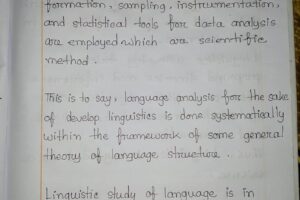 formation, sampling, instrumentation,
and stadistical tools for data analysis
are employed which are scientific
method.
This is to say, language analysis for the sake
of develop linguistics is done systematically
within the framework of some general
theory of language structure.
Linguistic study of language is in